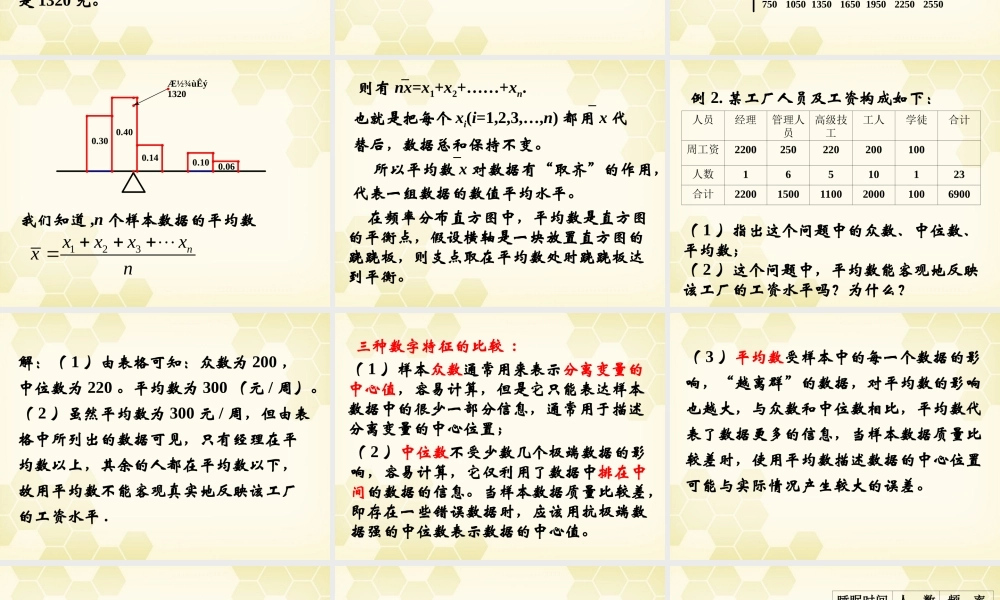 是 1320 元。
750 1050 1350 1650 1950 2250 2550
Æ½¾ùÊý
1320
0.30
0.40
0.14
0.10
0.06
我们知道 ,n 个样本数据的平均数
x̄ = (x₁ + x₂ + x₃ + ⋯ + xₙ) / n
则有 nx̄=x₁+x₂+……+xₙ.
也就是把每个 xᵢ(i=1,2,3,…,n) 都用 x̄ 代
替后，数据总和保持不变。
所以平均数 x̄ 对数据有“取齐”的作用，
代表一组数据的数值平均水平。
在频率分布直方图中，平均数是直方图
的平衡点，假设横轴是一块放置直方图的
跷跷板，则支点取在平均数处时跷跷板达
到平衡。
例 2. 某工厂人员及工资构成如下：
人员 经理 管理人员 高级技工 工人 学徒 合计
周工资 2200 250 220 200 100
人数 1 6 5 10 1 23
合计 2200 1500 1100 2000 100 6900
（ 1 ）指出这个问题中的众数、中位数、
平均数；
（ 2 ）这个问题中，平均数能客观地反映
该工厂的工资水平吗？为什么？
解：（ 1 ）由表格可知：众数为 200 ，
中位数为 220 。平均数为 300 （元 / 周）。
（ 2 ）虽然平均数为 300 元 / 周，但由表
格中所列出的数据可见，只有经理在平
均数以上，其余的人都在平均数以下，
故用平均数不能客观真实地反映该工厂
的工资水平 .
三种数字特征的比较 ：
（ 1 ）样本众数通常用来表示分离变量的
中心值，容易计算，但是它只能表达样本
数据中的很少一部分信息，通常用于描述
分离变量的中心位置；
（ 2 ）中位数不受少数几个极端数据的影
响，容易计算，它仅利用了数据中排在中
间的数据的信息。当样本数据质量比较差，
即存在一些错误数据时，应该用抗极端数
据强的中位数表示数据的中心值。
（ 3 ）平均数受样本中的每一个数据的影
响，“越离群”的数据，对平均数的影响
也越大，与众数和中位数相比，平均数代
表了数据更多的信息，当样本数据质量比
较差时，使用平均数描述数据的中心位置
可能与实际情况产生较大的误差。
睡眠时间 人 数 频 率